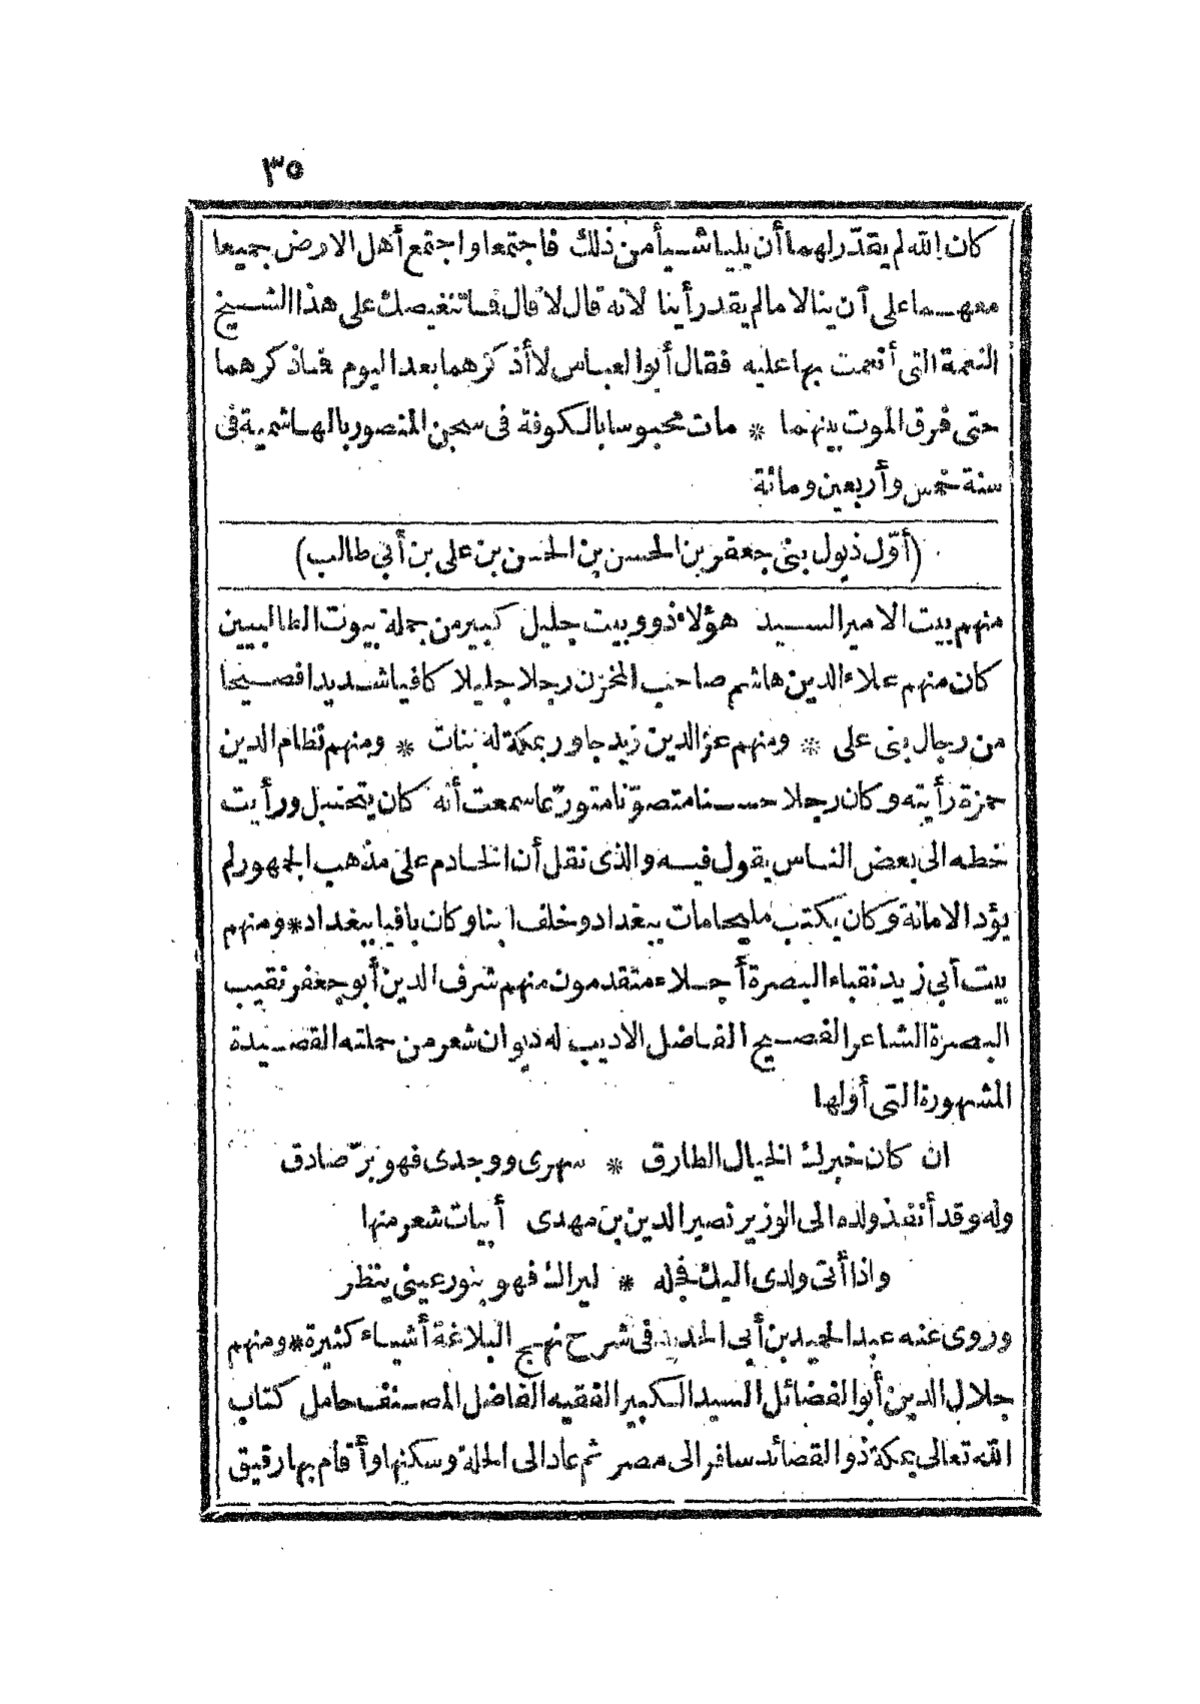 ٣٥
كان الله لم يقدّر لهما أن يليا شيأ من ذلك فاجتمعا واجتمع أهل الارض جميعا
معهما على أن ينالا ما لم يقدر أينا لانه قال لا قال فما تنغيصك على هذا الشيخ
النعمة التى أنعمت بها عليه فقال أبو العباس لا أذكرهما بعد اليوم فما ذكرهما
حتى فرق الموت بينهما * مات محبوسا بالكوفة فى سجن المنصور بالهاشمية فى
سنة خمس وأربعين ومائة
(أوّل ذيول بنى جعفر بن الحسن بن الحسن بن على بن أبى طالب)
منهم بيت الامير السيد هؤلاء ذوو بيت جليل كبير من جملة بيوت الطالبيين
كان منهم علاء الدين هاشم صاحب المخزن رجلا جليلا كافيا شديدا فصيحا
من رجال بنى على * ومنهم عز الدين زيد جاور بمكة له بنات * ومنهم نظام الدين
حمزة رأيته وكان رجلا حسنا متصوّنا متورّعا سمعت أنه كان يتحنبل ورأيت
خطه الى بعض الناس يقول فيه والذى نقل أن الخادم على مذهب الجمهور لم
يؤد الامانة وكان يكتب مليحا مات ببغداد وخلف ابنا وكان باقيا ببغداد * ومنهم
بيت أبى زيد نقباء البصرة أجلاء متقدمون منهم شرف الدين أبو جعفر نقيب
البصرة الشاعر الفصيح الفاضل الاديب له ديوان شعر من جملته القصيدة
المشهورة التى أولها
ان كان خبرك الخيال الطارق * سهرى ووجدى فهو برّ صادق
وله وقد أنفذ ولده الى الوزير نصير الدين بن مهدى أبيات شعر منها
واذا أتى ولدى اليك فخله * ليراك فهو بنور عينى ينظر
وروى عنه عبد الحميد بن أبى الحديد فى شرح نهج البلاغة أشياء كثيرة * ومنهم
جلال الدين أبو الفضائل السيد الكبير الفقيه الفاضل المصنف حامل كتاب
الله تعالى بمكة ذو القصائد سافر الى مصر ثم عاد الى الحلة وسكنها وأقام بها رقيق